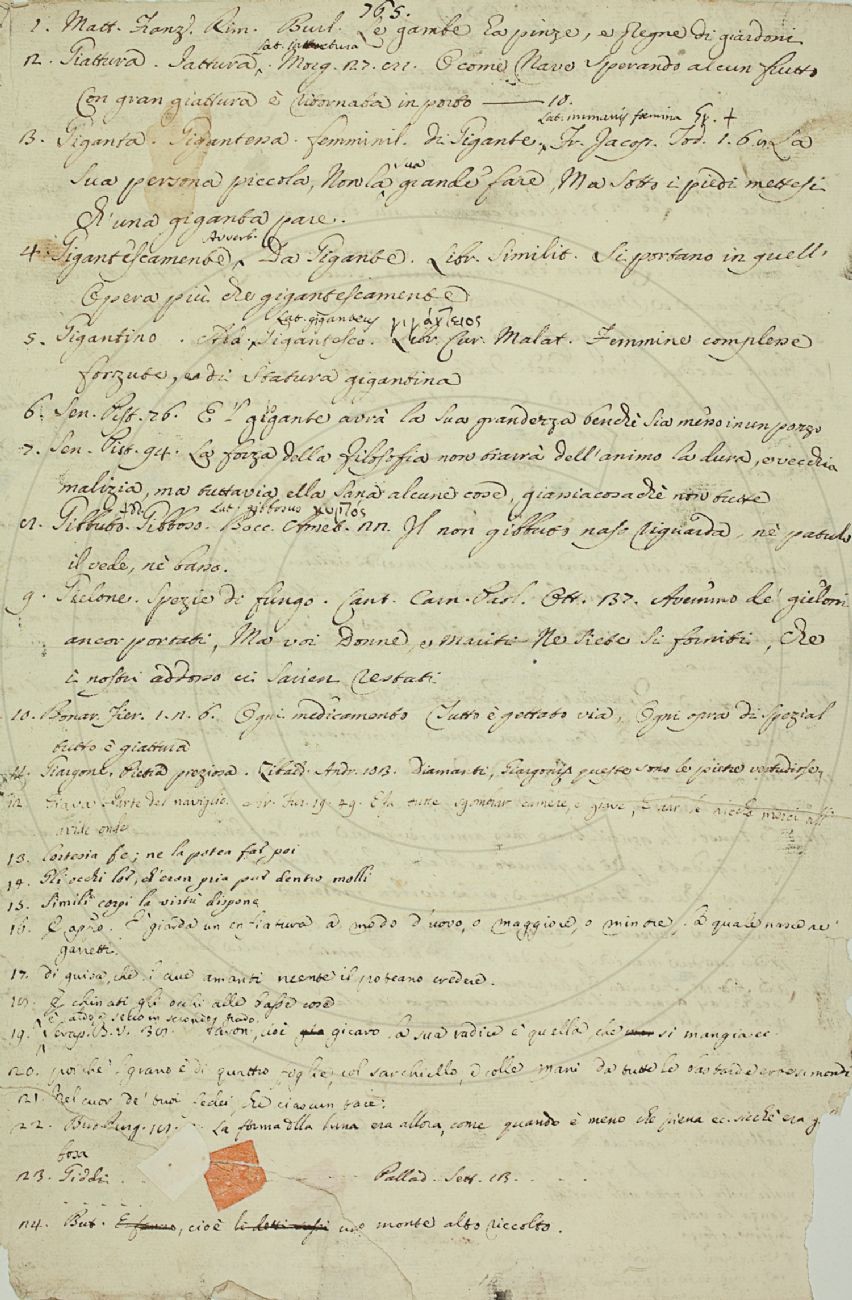 165.
1. Matt. Franz. Rim. Burl. Le gambe ha pinze, e pregne di giardoni
2. Giattura. Jattura, Lat. Iattura. Morg. 27. 21. E come Nave sperando alcun frutto
Con gran giattura è ritornata in porto —— 10.
3. Giganta. Gigantessa. femminil. di Gigante. Lat. immanis foemina Gr. + Fr. Jacop. Tod. 1. 6. 9. La
sua persona piccola, Non la sua grande fare, Ma sotto i piedi mettesi
Ch'una giganta pare.
4. Gigantescamente, Avverb. Da Gigante. Libr. Similit. Si portano in quell'
Opera più che gigantescamente
5. Gigantino. Add. Gigantesco. Lat. giganteus γιγάντειος Libr. Cur. Malat. Femmine complesse
forzute, e di statura gigantina
6. Sen. Pist. 76. E 'l gigante avrà la sua grandezza benchè sia messo in un pozzo
7. Sen. Pist. 94. La forza della Filosofia non trarrà dell'animo la dura, e vecchia
malizia, ma tuttavia ella sana alcune cose, giassiacosachè non tutte
8. Gibbuto. Add. Gibboso. Lat. gibbosus κυρτός Bocc. Amet. 22. Il non gibbuto naso riguarda, nè patulo
il vede, nè basso.
9. Gielone. Spezie di fungo. Cant. Carn. Paol. Ott. 137. Avemmo de' gieloni
ancor portati, Ma voi Donne, e mariti Ne siete sì forniti, che
i nostri addosso ci sarien restati
10. Bonar. Fier. 1. 2. 6. Ogni medicamento Tutto è gettato via, Ogni opra di spezial
tutto è giattura
11. Giargone, Pietra preziosa. Zibald. Andr. 103. Diamanti, Giargonza queste sono le pietre vertudiose
12. Parte del naviglio. Ar. Fur. 19. 49. E fa tutte sgombrar camere, e giave,
avide onde
13. Cortesia fe; ne la potea far poi
14. Gli occhi lor, ch'eran pria pur dentro molli
15. Simili corpi la virtù dispone
16. E giarda un enfiatura a modo d'uovo, o maggiore, o minore, la quale nasce ne'
garretti.
17. Di guisa, che i due amanti neente il poteano credere.
18. E chinati gli occhi alle basse cose
19. Serap. è caldo e secco in secondo grado. cioè gicaro la sua radice è quella, che si mangia ec
20. poichè 'l grano è di quattro foglie, col sarchiello, e colle mani da tutte le bastarde erbe si mondi
21. Nel cuor de' tuoi sedei, che ciascun tace.
22. But. Purg. 18. La forma della luna era allora, come quando è meno che piena ec. sicchè era gib
bosa
23. Giddi . . . Pallad. Sett. 13. . . .
24. But. , cioè uno monte alto riccolto.